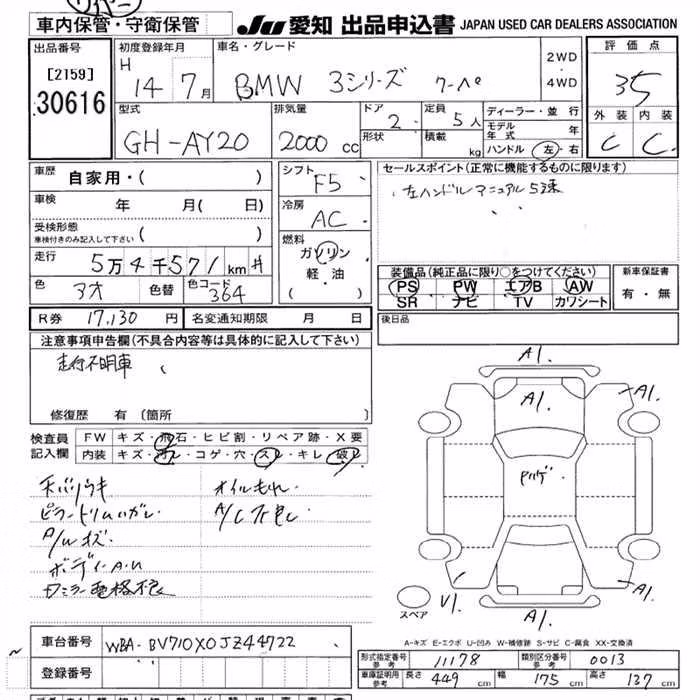 車内保管・守衛保管
JU 愛知 出品申込書 JAPAN USED CAR DEALERS ASSOCIATION
出品番号
[2159]
30616
初度登録年月
H 14年 7月
車名・グレード
BMW 3シリーズ クーペ
2WD
4WD
評価点
3.5
外装 内装
C C
型式
GH-AY20
排気量
2000 cc
ドア 2
形状
定員 5人
積載 kg
ディーラー・並行
モデル年式 年
ハンドル 左・右
車歴 自家用・( )
車検 年 月( 日)
受検形態
車検付きのみ記入して下さい ( )
走行 5万4千571km
色 アオ 色替 色コード 364
シフト F5
冷房 AC
燃料
ガソリン
軽・油
( )
セールスポイント(正常に機能するものに限ります)
左ハンドルマニュアル5速
装備品(純正品に限り○をつけてください)
PS PW エアB AW
SR ナビ TV カワシート
新車保証書
有・無
R券 17,130円 名変通知期限 月 日
後日品
注意事項申告欄(不具合内容等は具体的に記入して下さい)
走行不明車
修復歴 有 (箇所 )
検査員記入欄
FW キズ・飛石・ヒビ割・リペア跡・X要
内装 キズ・汚レ・コゲ・穴・スレ・キレ・破レ
オイルもれ
ピラートリムハガレ
A/C不良
A/Wキズ
ボディーA.U
A1.
A1.
A1.
V1.
A1.
A1.
スペア
A-キズ E-エクボ U-凹み W-補修跡 S-サビ C-腐食 XX-交換済
車台番号 WBA-BV710X0JZ44722
登録番号
形式指定番号 参考 11178 類別区分番号 参考 0013
車庫証明用 参考 長さ 449cm 幅 175cm 高さ 137cm